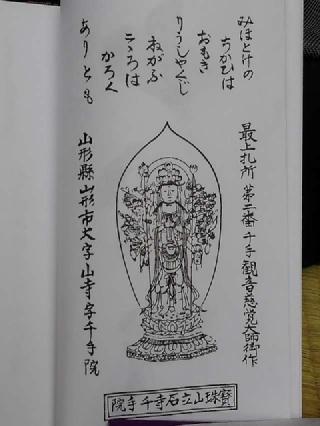 最上札所 第二番 千手観音慈覚大師御作
みほとけの
ちかひは
おもき
りうしやくじ
ねがふ
こゝろは
かろく
ありとも
山形縣山形市大字山寺字千手院
寶珠山立石寺千手院